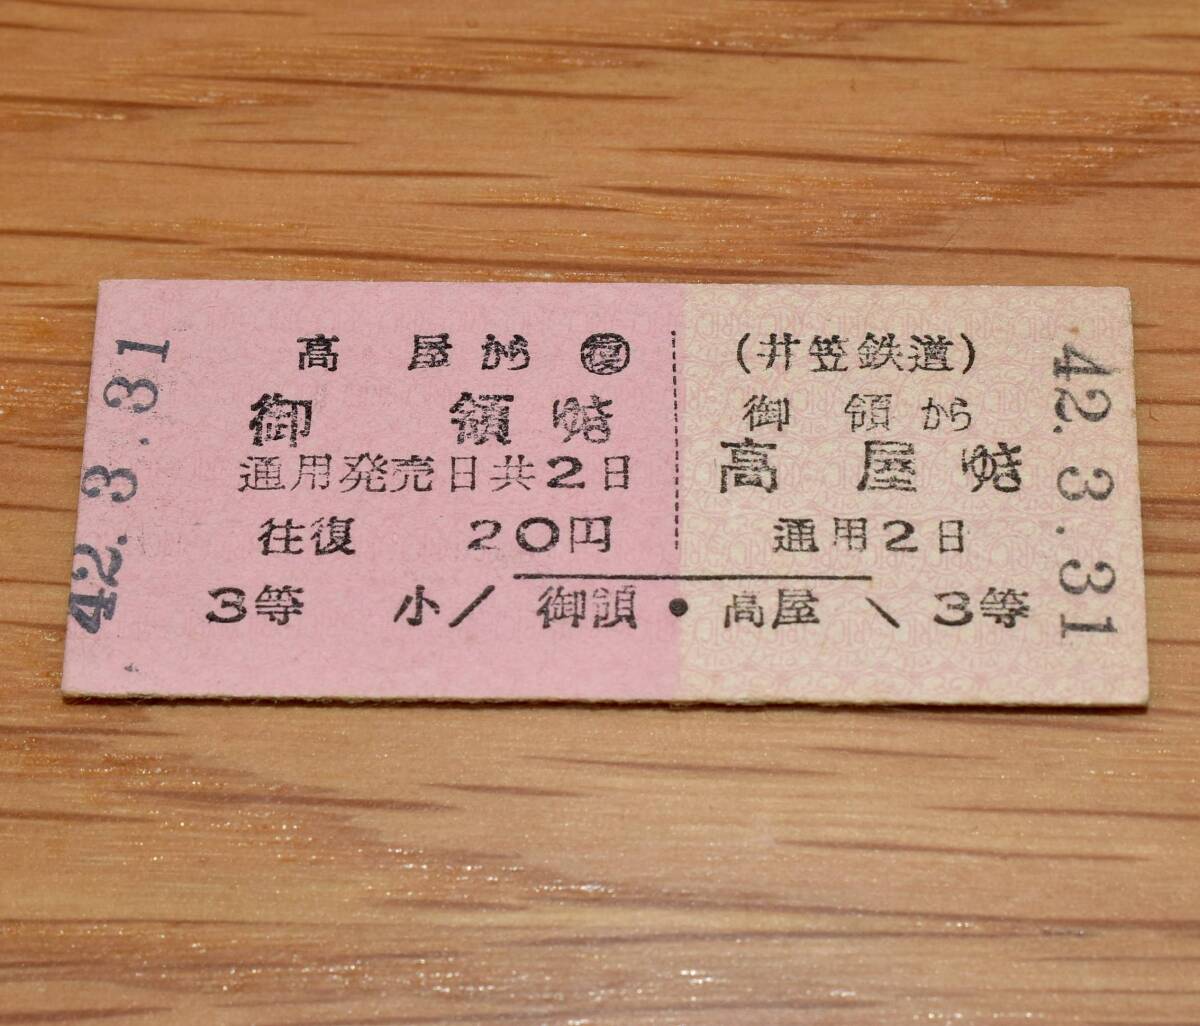 42.3.31
高屋から ㊝
御領ゆき
通用発売日共2日
往復 20円
3等 小／ 御領
(井笠鉄道)
御領から
高屋ゆき
通用2日
高屋 ＼ 3等
42.3.31